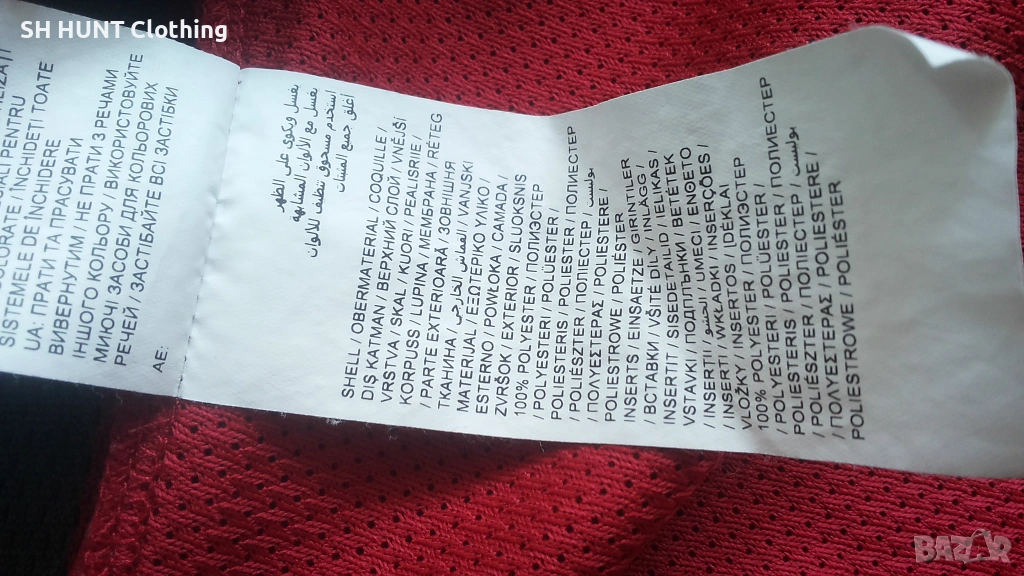 SH HUNT Clothing
SISTEMELE DE ÎNCHIDERE
UA: ПРАТИ ТА ПРАСУВАТИ
ВИВЕРНУТИМ / НЕ ПРАТИ З РЕЧАМИ
ІНШОГО КОЛЬОРУ / ВИКОРИСТОВУЙТЕ
МИЮЧІ ЗАСОБИ ДЛЯ КОЛЬОРОВИХ
РЕЧЕЙ / ЗАСТІБАЙТЕ ВСІ ЗАСТІБКИ
AE:
يغسل ويكوى على الظهر
يغسل مع الألوان المشابهة
استخدم مسحوق تنظيف للألوان
أغلق جميع السحابات
SHELL / OBERMATERIAL / COQUILLE /
DIS KATMAN / ВЕРХНИЙ СЛОЙ / VNĚJŠÍ
VRSTVA / SKAL / KUORI / PEALISRIE /
KORPUSS / LUPINA / МЕМБРАНА / RÉTEG
/ PARTE EXTERIOARĂ / ЗОВНІШНЯ
ТКАНИНА / القماش الخارجي / VANJSKI
MATERIJAL / ΕΞΩΤΕΡΙΚΟ ΥΛΙΚΟ /
ESTERNO / POWŁOKA / CAMADA /
ZVRŠOK / EXTERIOR / SLUOKSNIS
100% POLYESTER / ПОЛИЭСТЕР
/ POLYESTERI / POLÜESTER /
POLIESTERIS / POLIESTER / ПОЛИЕСТЕР
/ POLIÉSZTER / ПОЛІЕСТЕР / بوليستر
/ ΠΟΛΥΕΣΤΕΡΑΣ / POLIESTERE /
POLIESTROWE / POLIÉSTER
INSERTS / EINSAETZE / GIRINTILER
/ ВСТАВКИ / VŠITÉ DÍLY / INLÄGG /
INSERTIT / SISEDETAILID / IELIKAS /
VSTAVKI / ПОДПЛЪНКИ / BETÉTEK
/ INSERTII / الحشو / UMECI / ΕΝΘΕΤΟ
/ INSERTI / WKŁADKI / INSERÇÕES /
VLOŽKY / INSERTOS / IDĖKLAI
100% POLYESTER / ПОЛИЭСТЕР
/ POLYESTERI / POLÜESTER /
POLIESTERIS / POLIESTER / ПОЛИЕСТЕР
/ POLIÉSZTER / ПОЛІЕСТЕР / بوليستر
/ ΠΟΛΥΕΣΤΕΡΑΣ / POLIESTERE /
POLIESTROWE / POLIÉSTER
BAZAR